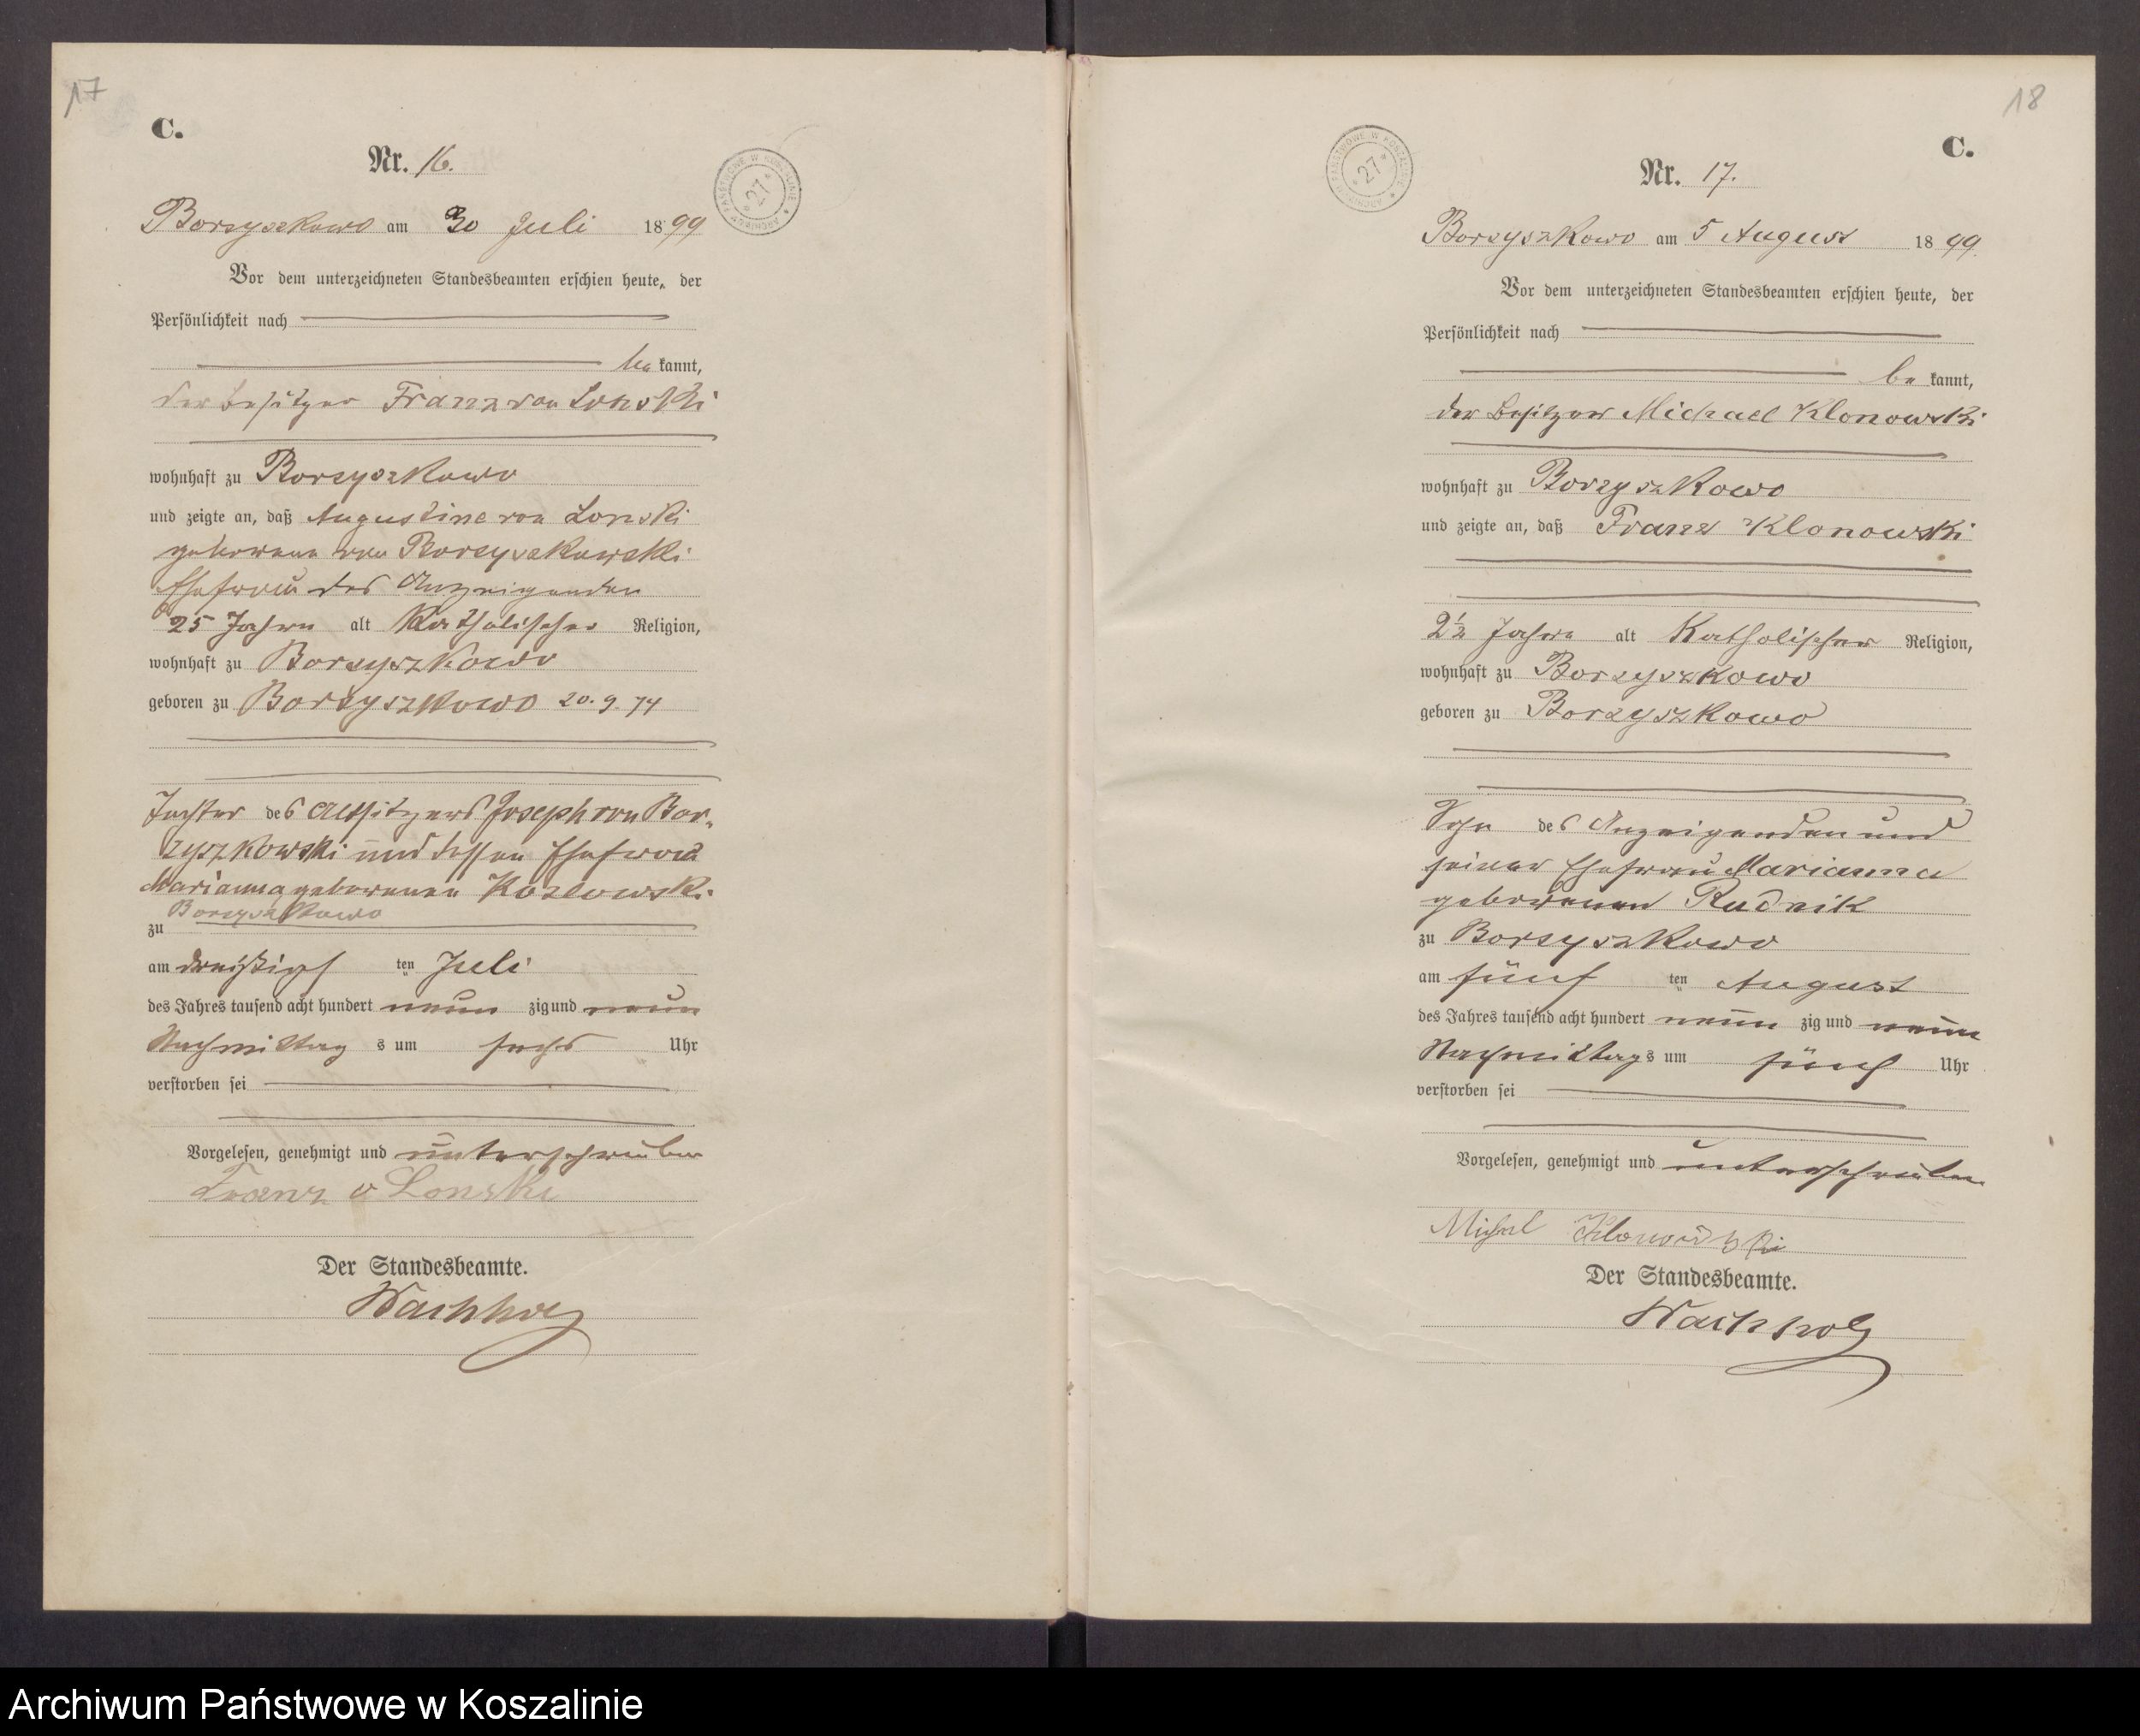 17
C.
Nr. 16.
Borzyszkowo am 30 Juli 1899
Vor dem unterzeichneten Standesbeamten erschien heute, der
Persönlichkeit nach
be kannt,
der Besitzer Franz von Lonski
wohnhaft zu Borzyszkowo
und zeigte an, daß Augustine von Lonski
geborene von Borzyszkowski
Ehefrau des Anzeigenden
25 Jahre alt Katholischer Religion,
wohnhaft zu Borzyszkowo
geboren zu Borzyszkowo 20.9.74
Tochter des Altsitzers Joseph von Bor-
zyszkowski und dessen Ehefrau
Marianna geborenen Kozlowski
zu Borzyszkowo
am dreißigs ten Juli
des Jahres tausend acht hundert neun zig und neun
Nachmittag s um sechs Uhr
verstorben sei
Vorgelesen, genehmigt und unterschrieben
Franz v Lonski
Der Standesbeamte.
Wachholz
ARCHIWUM PAŃSTWOWE W KOSZALINIE
27
18
C.
ARCHIWUM PAŃSTWOWE W KOSZALINIE
27
Nr. 17.
Borzyszkowo am 5 August 1899.
Vor dem unterzeichneten Standesbeamten erschien heute, der
Persönlichkeit nach
be kannt,
der Besitzer Michael Klonowski
wohnhaft zu Borzyszkowo
und zeigte an, daß Franz Klonowski
2½ Jahre alt Katholischer Religion,
wohnhaft zu Borzyszkowo
geboren zu Borzyszkowo
Sohn des Anzeigenden und
seiner Ehefrau Marianna
geborenen Rudnik
zu Borzyszkowo
am fünf ten August
des Jahres tausend acht hundert neun zig und neun
Nachmittag s um fünf Uhr
verstorben sei
Vorgelesen, genehmigt und unterschrieben
Michael Klonowski
Der Standesbeamte.
Wachholz
Archiwum Państwowe w Koszalinie